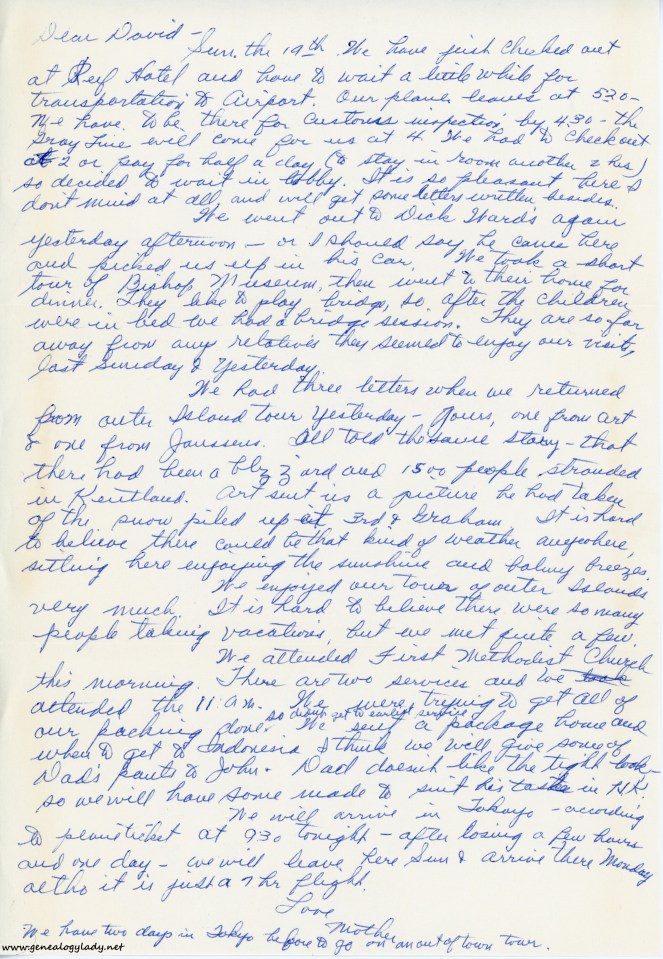 Dear David -
Sun. the 19th We have just checked out
at Reef Hotel and have to wait a little while for
transportation to Airport. Our plane leaves at 530 -
We have to be there for Customs inspection by 430 - the
Gray Line will come for us at 4. We had to check out
at 2 or pay for half a day (to stay in room another 2 hrs)
so decided to wait in lobby. It is so pleasant here I
don't mind at all, and will get some letters written besides.
We went out to Dick Wards again
yesterday afternoon - or I should say he came here
and picked us up in his car. We took a short
tour of Bishop Museum, then went to their home for
dinner. They like to play bridge, so after the children
were in bed we had a bridge session. They are so far
away from any relatives they seemed to enjoy our visits,
last Sunday & Yesterday.
We had three letters when we returned
from outer Island tour yesterday - Yours, one from Art
& one from Janssens. All told the same story - that
there had been a blizzard and 1500 people stranded
in Kentland. Art sent us a picture he had taken
of the snow piled up at 3rd & Graham. It is hard
to believe there could be that kind of weather anywhere,
sitting here enjoying the sunshine and balmy breezes.
We enjoyed our tour of outer Islands
very much. It is hard to believe there were so many
people taking vacations, but we met quite a few.
We attended First Methodist Church
this morning. There are two services and we took
attended the 11 a.m. We were trying to get all of
so didn't get to earliest service
our packing done. We sent a package home and
when to get to Indonesia I think we will give some of
Dad's pants to John. Dad doesn't like the tight look -
so we will have some made to suit his taste in H.K.
We will arrive in Tokayo - according
to plane ticket at 930 tonight - after losing a few hours
and one day - we will leave here Sun & arrive there Monday
altho it is just a 7 hr flight.
Love
Mother
We have two days in Tokyo before to go on an out of town tour.
www.genealogylady.net